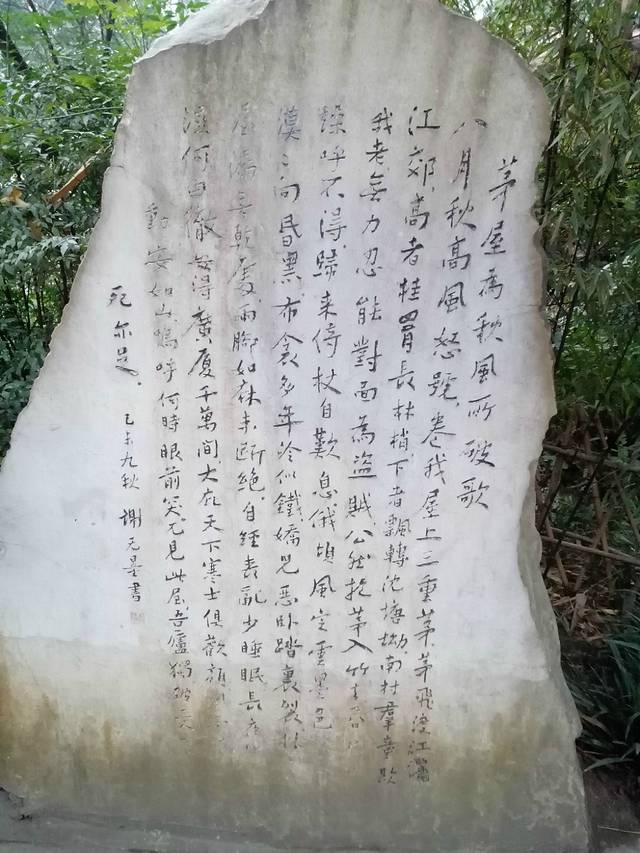 茅屋為秋風所破歌
八月秋高風怒號,卷我屋上三重茅,茅飛渡江灑
江郊,高者挂罥長林梢,下者飄轉沈塘坳,南村羣童欺
我老無力忍能對面為盜賊,公然抱茅入竹去
燥呼不得,歸來倚杖自歎息俄頃風定雲墨色
漠〻向昏黑布衾多年冷似鐵,嬌兒惡卧踏裏裂牀
屋漏無乾處,雨脚如麻未斷絕,自經喪亂少睡眠長夜
濕何由徹安得廣厦千萬間大庇天下寒士俱歡顏
動安如山嗚呼何時眼前突兀見此屋吾廬獨破受
死亦足。 己未九秋 謝无量書